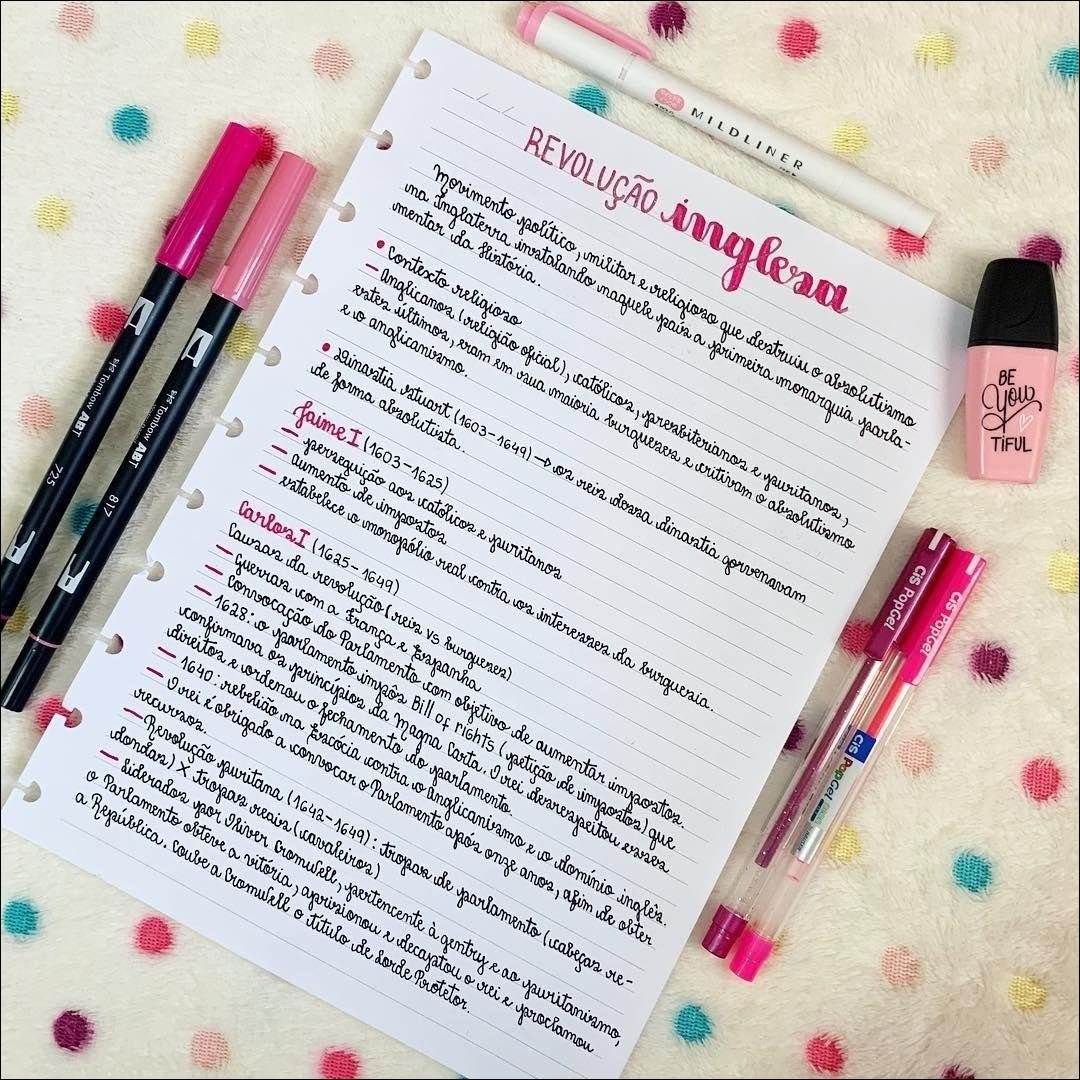 REVOLUÇÃO inglesa
Movimento político, militar e religioso que destruiu o absolutismo
na Inglaterra instalando naquele país a primeira monarquia parla-
mentar da História.
• Contexto religioso
— Anglicanos (religião oficial), católicos, presbiterianos e puritanos,
estes últimos, eram em sua maioria burgueses e critivam o absolutismo
e o anglicanismo.
• Dinastia Stuart (1603-1649) → os reis dessa dinastia governavam
de forma absolutista.
Jaime I (1603-1625)
— perseguição aos católicos e puritanos
— aumento de impostos
— estabelece o monopólio real contra os interesses da burguesia.
Carlos I (1625-1649)
Causas da revolução (reis vs burgueses)
— Guerras com a França e Espanha
— Convocação do Parlamento com objetivo de aumentar impostos.
— 1628: o parlamento impôs Bill of rights (petição de impostos) que
confirmava os princípios da Magna Carta. O rei desrespeitou esses
direitos e ordenou o fechamento do parlamento.
— 1640: rebelião na Escócia contra o anglicanismo e o domínio inglês.
— O rei é obrigado a convocar o Parlamento após onze anos, afim de obter
recursos.
— Revolução puritana (1642-1649): tropas de parlamento (cabeças re-
dondas) X tropas reais (cavaleiros)
— Liderados por Oliver Cromwell, pertencente à gentry e ao puritanismo,
o Parlamento obteve a vitória, aprisionou e decapitou o rei e proclamou
a República. Coube a Cromwell o título de Lorde Protetor.
MILDLINER
BE
YOU
TIFUL
Tombow ABT
725
Tombow ABT
817
CiS PopGel
CiS PopGel
CiS PopGel